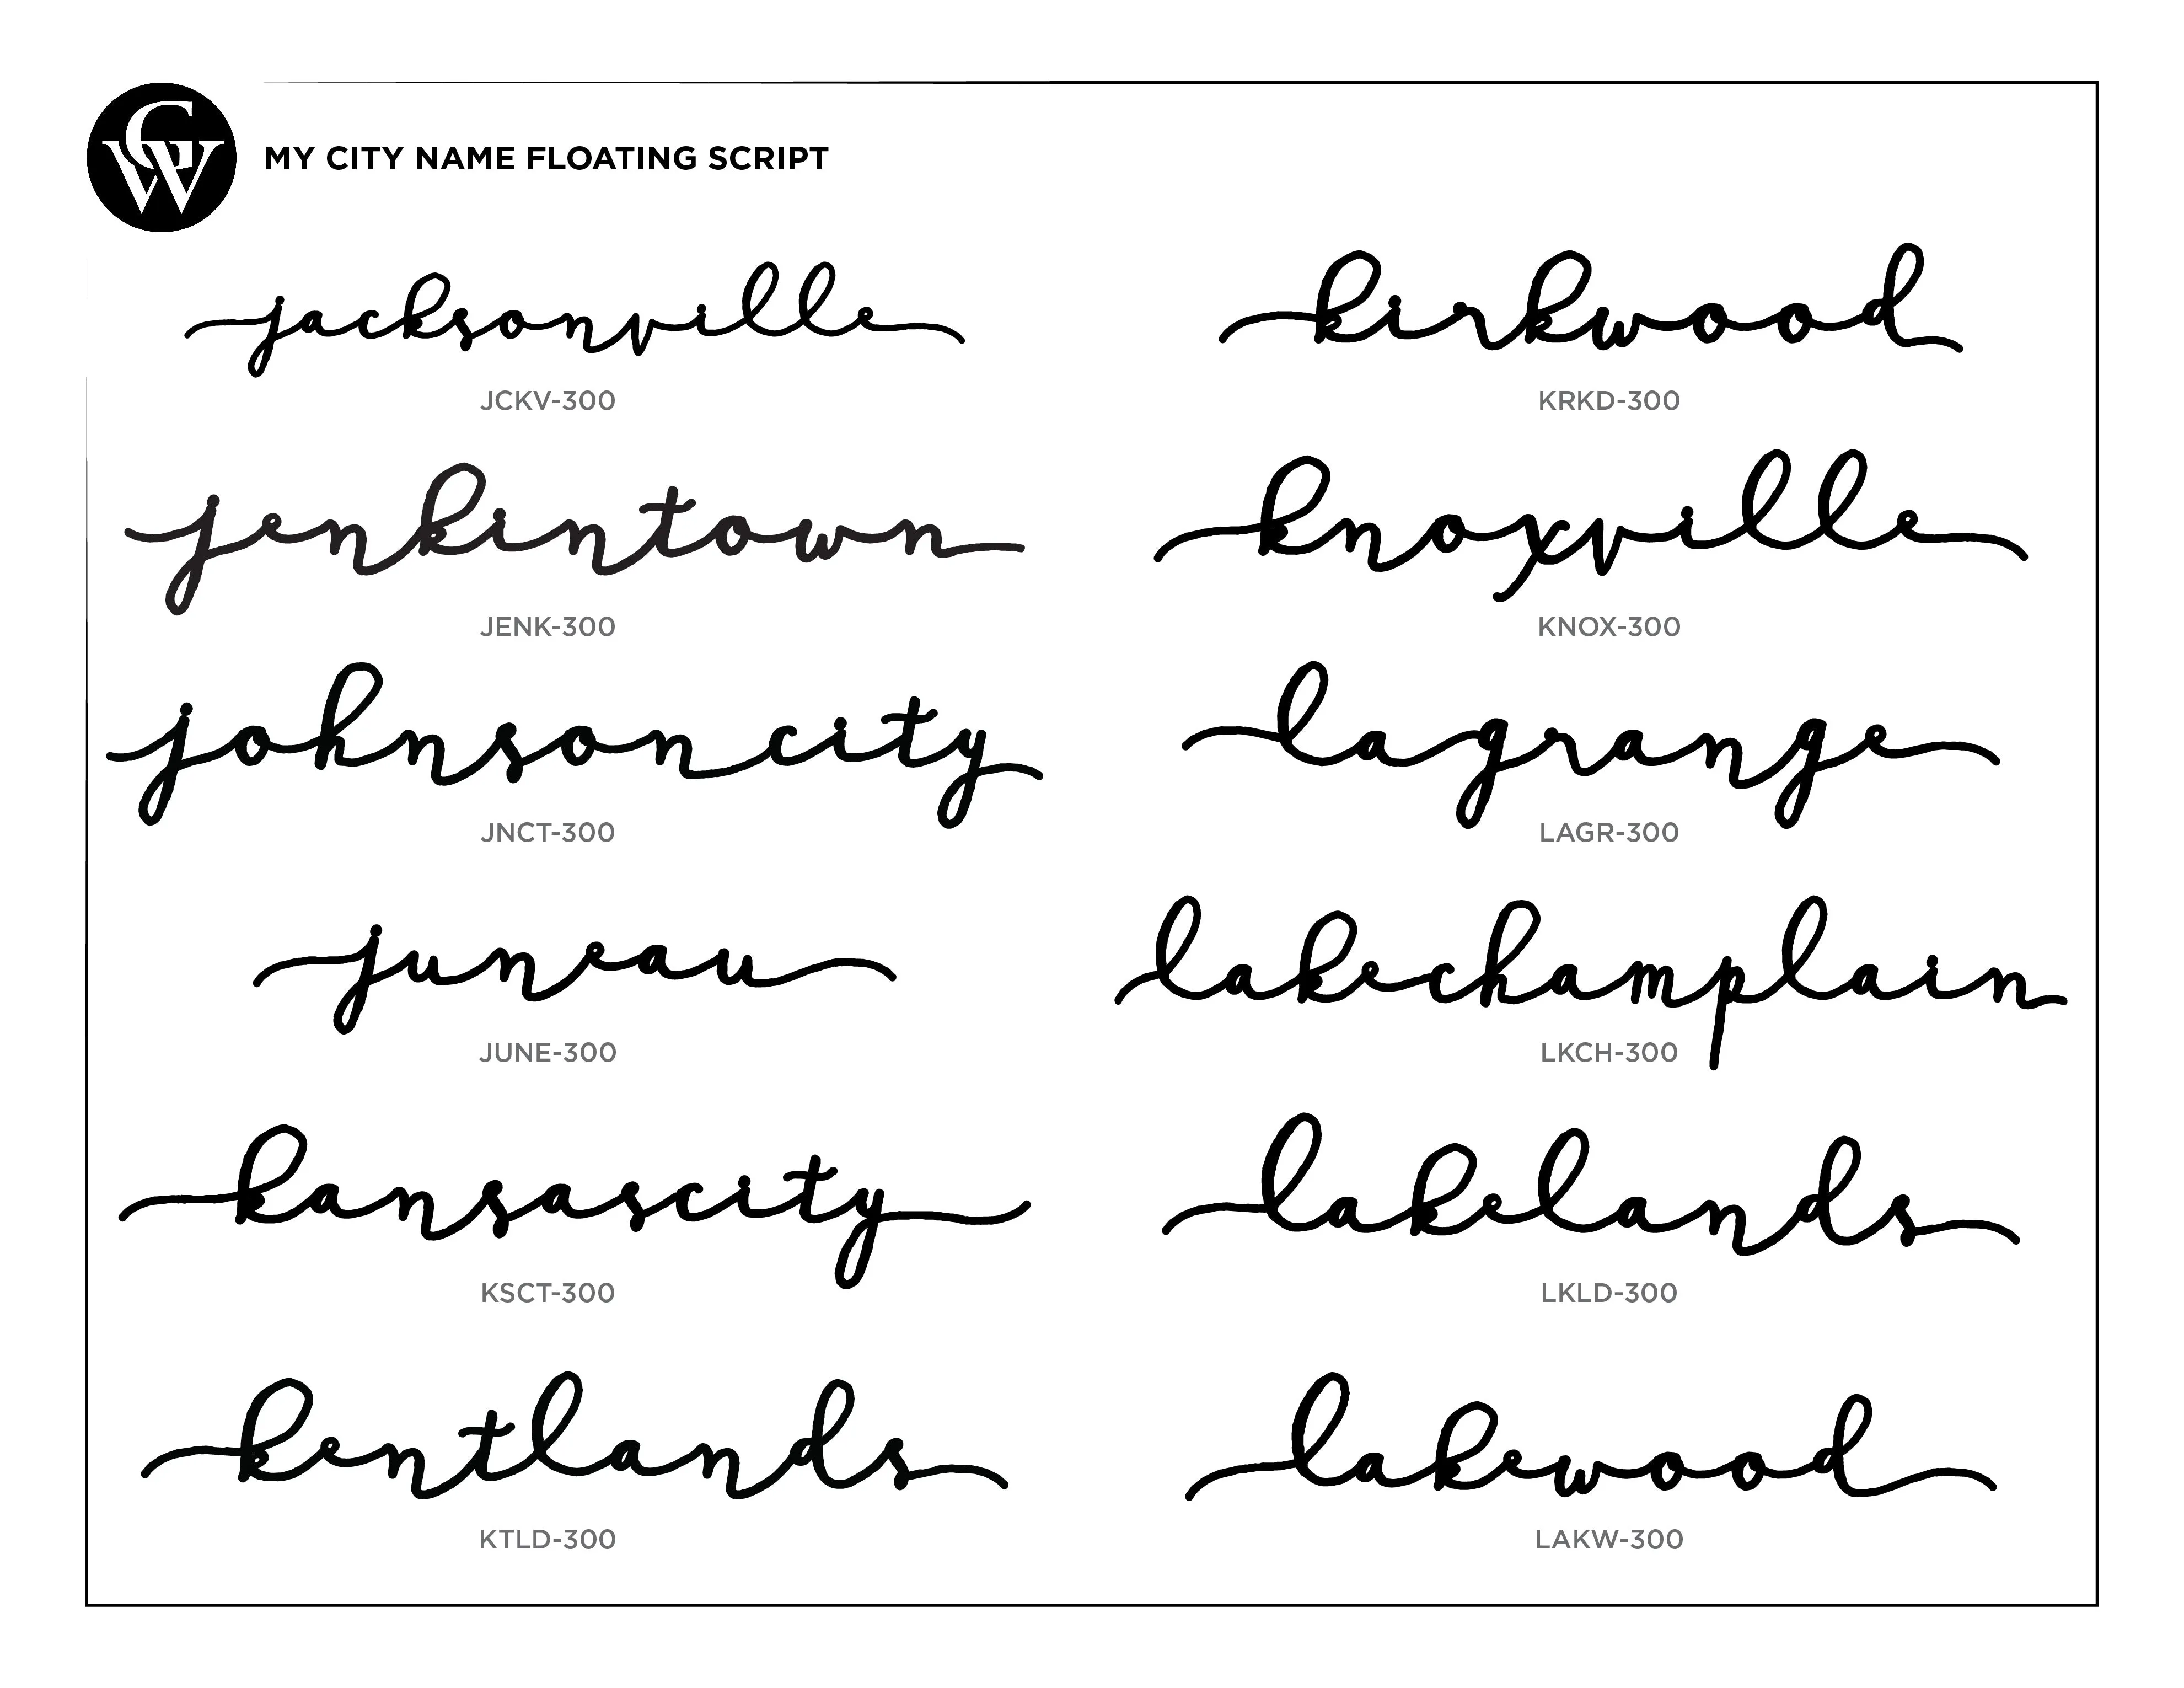 CW
MY CITY NAME FLOATING SCRIPT
jacksonville
JCKV-300
jenkintown
JENK-300
johnsoncity
JNCT-300
juneau
JUNE-300
kansascity
KSCT-300
kentlands
KTLD-300
kirkwood
KRKD-300
knoxville
KNOX-300
lagrange
LAGR-300
lakechamplain
LKCH-300
lakelands
LKLD-300
lakewood
LAKW-300